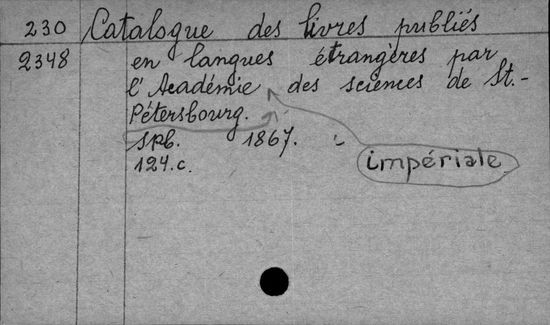 230 Catalogue des livres publiés
2348 en langues étrangères par
l'Académie des sciences de St.-
Pétersbourg.
Spb. 1867.
impériale
124.c.